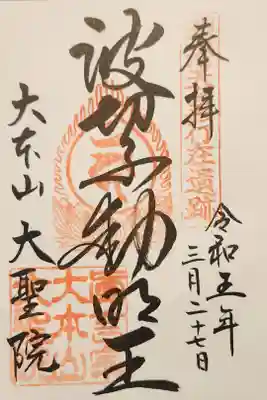 奉拝
令和五年
三月二十七日
波切不動明王
大本山 大聖院